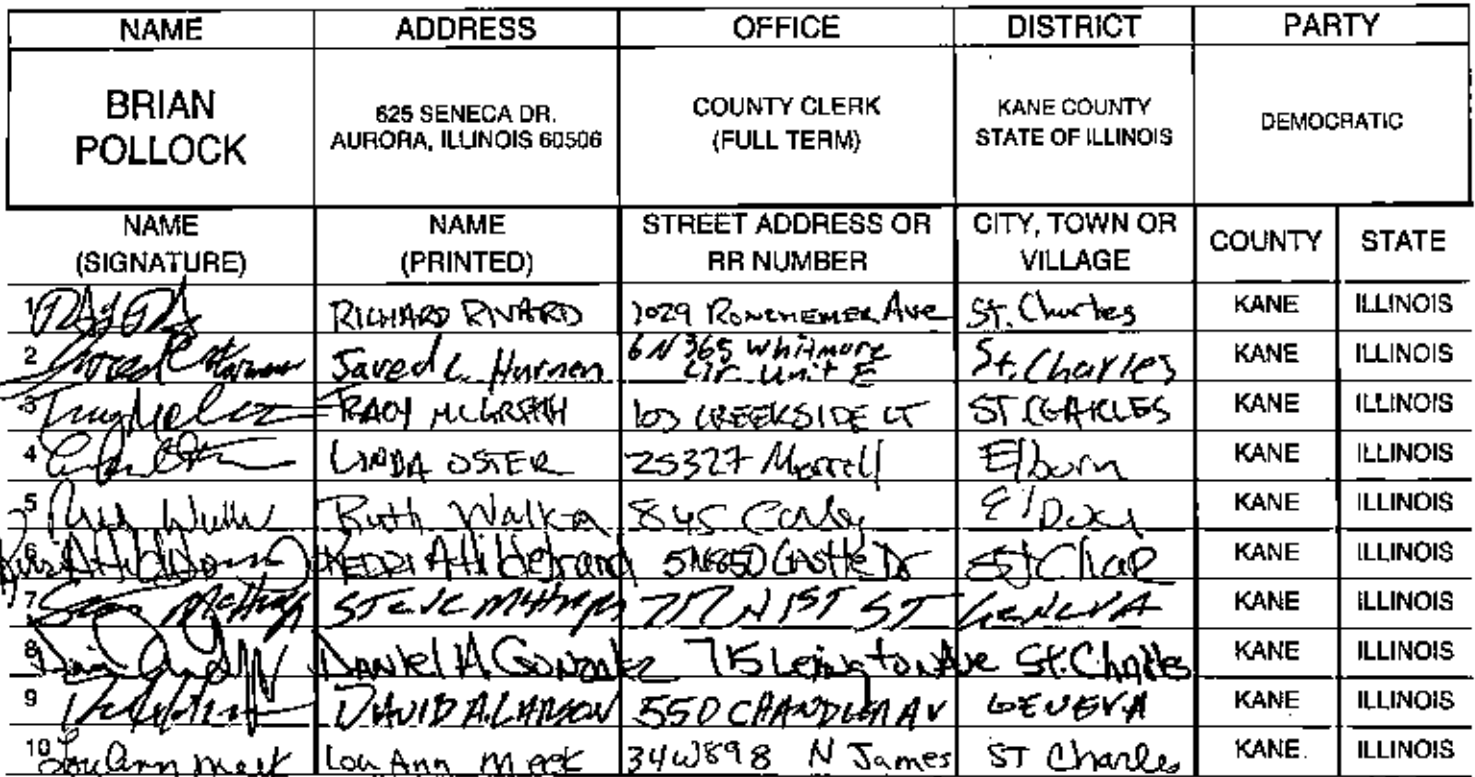 NAME ADDRESS OFFICE DISTRICT PARTY
BRIAN POLLOCK
625 SENECA DR.
AURORA, ILLINOIS 60506
COUNTY CLERK
(FULL TERM)
KANE COUNTY
STATE OF ILLINOIS
DEMOCRATIC
NAME (SIGNATURE) NAME (PRINTED) STREET ADDRESS OR RR NUMBER CITY, TOWN OR VILLAGE COUNTY STATE
1 RICHARD RIVARD 1029 Ave St. Charles KANE ILLINOIS
2 Jared L. Harmon 6N365 Whitmore Cir. Unit E St. Charles KANE ILLINOIS
3 TRACY MCGRATH CREEKSIDE CT ST CHARLES KANE ILLINOIS
4 LINDA OSTER 25327 Merrill Elburn KANE ILLINOIS
5 Ruth KANE ILLINOIS
6 A Hildebrand Castle Dr KANE ILLINOIS
7 STEVE 717 N 1ST ST GENEVA KANE ILLINOIS
8 Daniel A Gonzalez 715 Lexington Ave St. Charles KANE ILLINOIS
9 DAVID A. LARSON 550 CHANDLER AV GENEVA KANE ILLINOIS
10 Lou Ann Meek Lou Ann Meek 34W898 N James ST Charles KANE. ILLINOIS